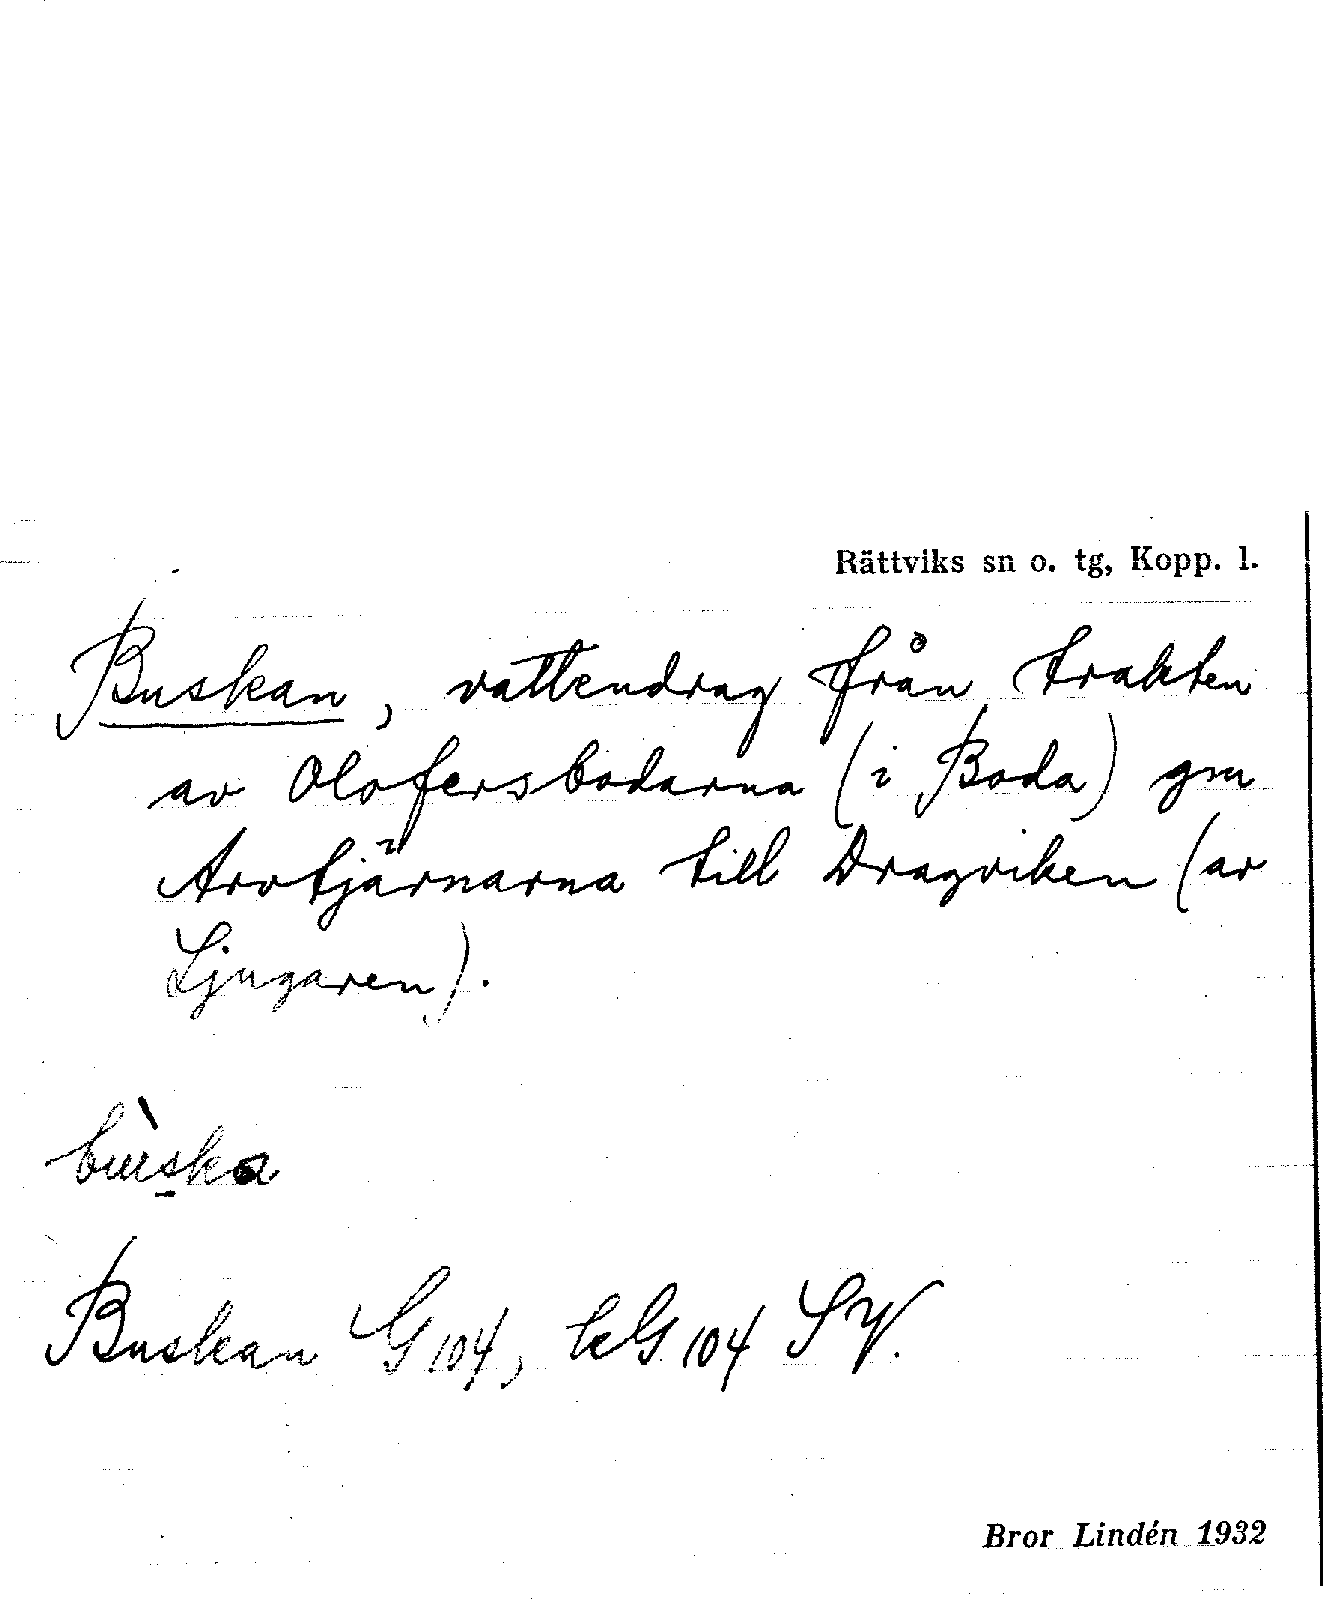 Rättviks sn o. tg, Kopp. l.
Buskan, vattendrag från trakten
av Olofersbodarna (i Boda) gm
Arvtjärnarna till Dragviken (av
Ljugaren).
bùska
Buskan G 104, kG 104 SV.
Bror Lindén 1932